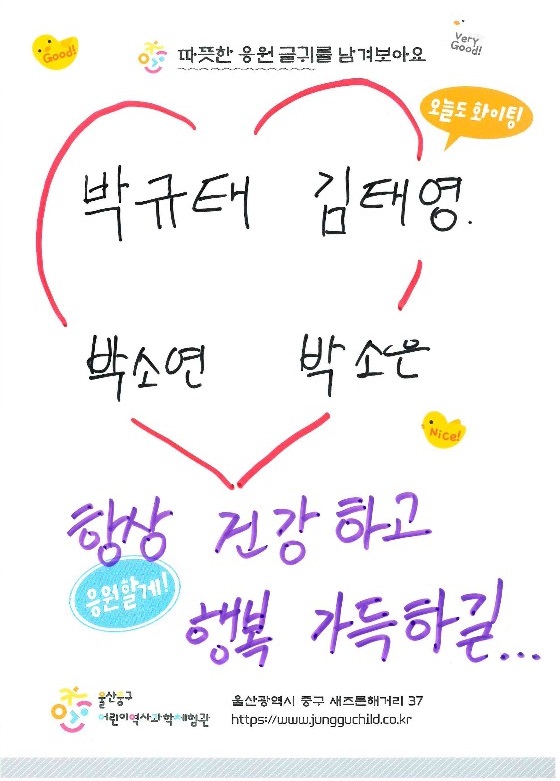 Good!
따뜻한 응원 글귀를 남겨보아요
Very
Good!
오늘도 화이팅!
박규태 김태영.
박소연 박소은
Nice!
항상 건강하고
응원할게!
행복 가득하길...
울산중구
어린이역사과학체험관
울산광역시 중구 새즈믄해거리 37
https://www.jungguchild.co.kr